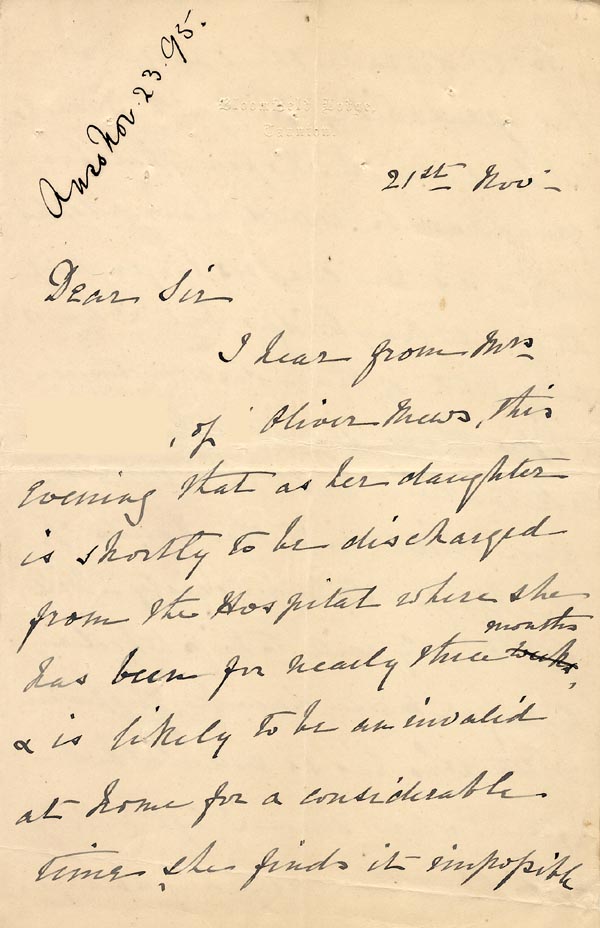 Ansd Nov. 23. 95.
Bloomfield Lodge,
Taunton.
21st Nov
Dear Sir
I hear from Mrs
, of Oliver Mews, this
evening that as her daughter
is shortly to be discharged
from the Hospital where she
months
has been for nearly three weeks,
& is likely to be an invalid
at home for a considerable
time, she finds it impossible